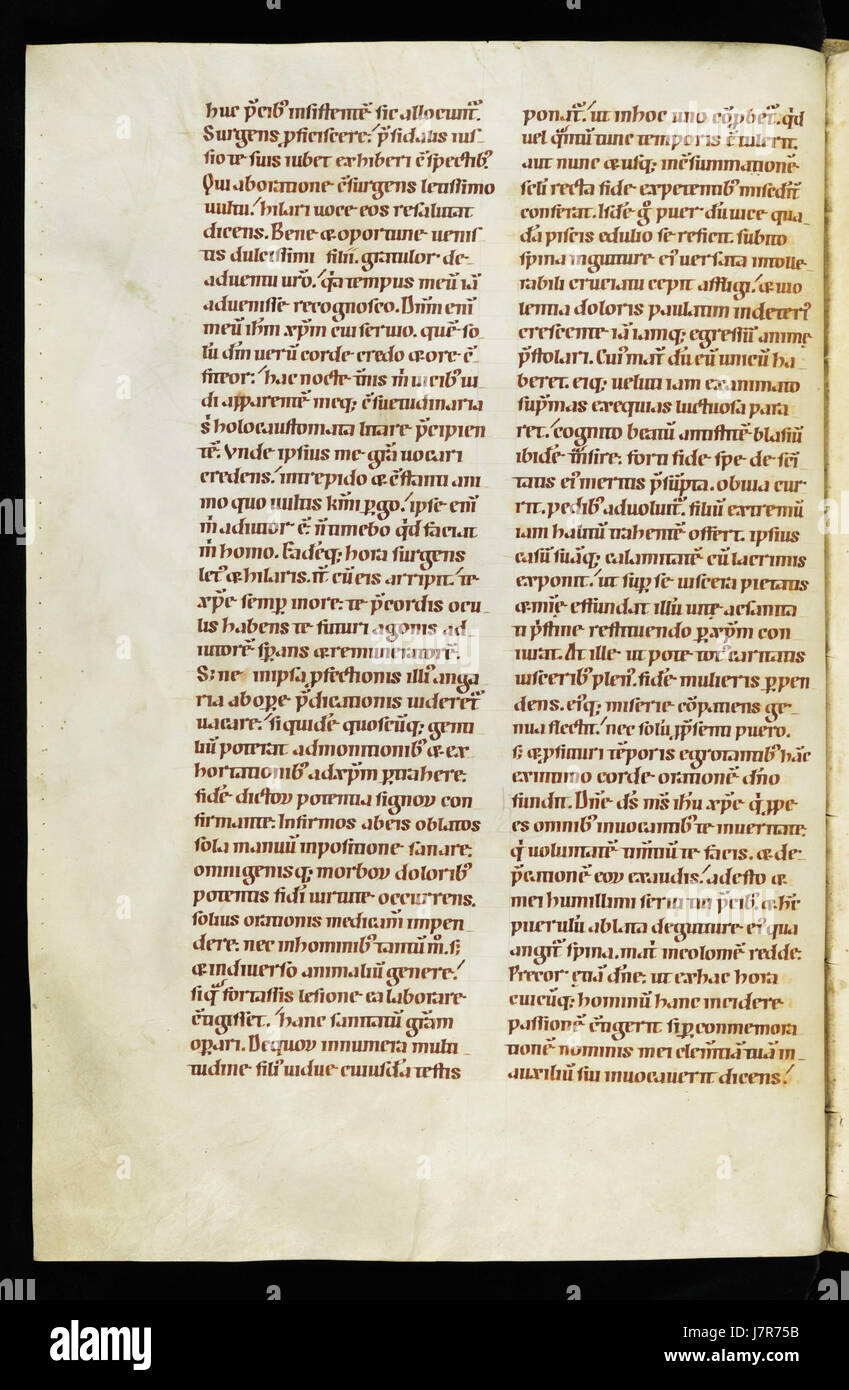 huc p̄cib᷒ insistentē sic allocunt᷒.
Surgens p̱ficiscere. p̄sidalis ius_
sio te suis iubet exhiberi c̄spectib᷒.
Qui ab oratione c̄surgens letissimo
uultu. hilari uoce eos resalutat
dicens. Bene & oportune uenis_
tis dulcissimi filii. gratulor de
aduentu uro. q̄a tempus meū iā
aduenisse recognosco. Dn̄m eni
meū ihm xp̄m cui seruio. quē so_
lū dm̄ uerū corde credo & ore c̄_
fiteor. hac nocte
di apparentē meq; c̄suetudinaria
s᷒ holocaustomata litare p̄cipien
tē. Vnde ipsius me grā uocari
credens. intrepido & c̄stanti ani_
mo quo uultis p̱go. ipse eni
m̄ adiutor ē. n̄ timebo q̄d faciat
m̄ homo. Eadēq; hora surgens
let᷒ & hilaris. it̄ cū eis arripit. te
xp̄e semp̱ more. te p̄cordis ocu_
lis habens te futuri agonis ad_
iutorē sp̱ans & remuneratorē.
Sine p̱fectionis illi᷒ anga
ria ab op̱e p̄dicationis uideret᷒
uacare. siquidē quoscūq; genti
liū poterat admonitionib᷒ & ex_
hortationib᷒ ad xp̄m p̱trahere.
fidē dictoꝝ potentia signoꝝ con_
firmante. Infirmos ab eis oblatos
sola manuū inpositione sanare.
omnigenisq; morboꝝ dolorib᷒
potentis fidi uirtute occurrens.
solius orationis medicam̄ impen_
dere. nec in hominib᷒ tantū m̊. s;
& in diuerso animaliū genere.
siq᷒ fortassis lesione ea laborare
c̄tigisset. hanc sanitatū grām
op̱ari. De quoꝝ innumera multi_
tudine fili᷒ uidue cuiusdā testis
ponat᷒. ut in hoc uno c̄p̱bet᷒. q̄d
uel q̄ntū tunc temporis c̄tulerit.
aut nunc & usq; in c̄summationē
scl̄i recta fide expetentib᷒
conferat. Isdē g̊ puer dū uice qua_
dā piscis edulio se reficit. subito
spina in guture ei᷒ uersata intolle_
rabili cruciatu cepit affligi. & uio_
lentia doloris paulatim in deteri᷒
crescente iā iamq; egressū anime
p̄stolari. Cui᷒ mat̄ dū eū unicū ha_
beret. eiq; uelut iam exanimato
sup̄mas exequias luctuosa para_
ret. cognito beatū antistitē blasiū
ibidē t̄nsire. forti fide spe de sc̄i_
tatis ei᷒ meritis p̄sūpta. obuia cur_
rit. pedib᷒ aduoluit᷒. filiū extremū
iam halitū trahentē offert. ipsius
casū suāq; calamitatē cū lacrimis
exponit. ut sup̱ se uiscera pietatis
& mie effundat illū uite ac sanita_
ti p̄stine restituendo p̱ xp̄m con_
iurat. At ille ut pote tot᷒ caritatis
uiscerib᷒ plen᷒. fidē mulieris p̱pen_
dens. ei᷒q; miserie c̄patiens ge_
nua flectit. nec solū p̱ p̱senti puero.
s; & p̱ futuri tēporis egrotantib᷒ hāc
ex intimo corde orationē dn̄o
fundit. Dn̄e ds̄ ms̄ ihu xp̄e q̄ p̱pe
es omnib᷒ inuocantib᷒ te in ueritate.
q̄ uoluntatē timtiū te facis. & de_
p̄cationē eoꝝ exaudis. adesto &
mei humillimi serui tui p̄cib᷒. & h᷒c
puerulū ablata de guture ei᷒ qua
angit᷒ spina. mat̄ incolomē redde.
Precor etiā dn̄e. ut ex hac hora
cuicūq; hominū hanc incidere
passionē c̄tigerit si p̱ conmemora_
tionē nominis mei clem̄tiā tuā in_
auxiliū sui inuocauerit dicens.
alamy
Image ID: J7R75B
www.alamy.com